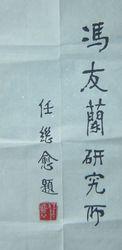 冯友蘭研究所
任继愈題